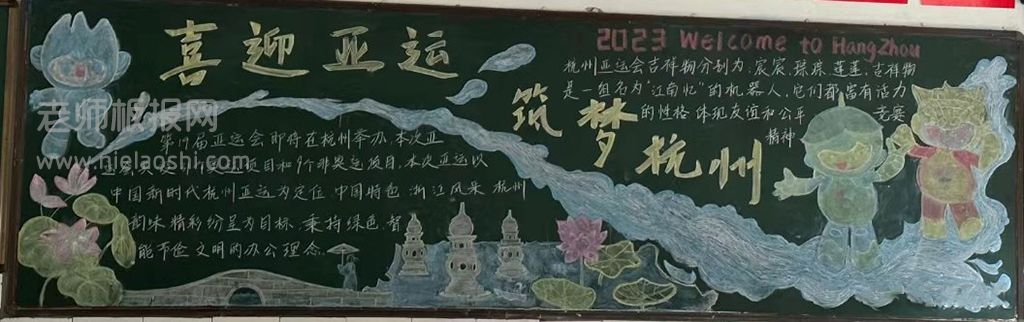 喜迎亚运
2023 Welcome to HangZhou
杭州亚运会吉祥物分别为,宸宸,琮琮,莲莲,吉祥物
是一组名为“江南忆”的机器人,它们都富有活力
的性格 体现友谊和公平 竞赛
精神
筑梦杭州
第19届亚运会即将在杭州举办,本次亚
项目和9个非奥运项目,本次亚运以
中国新时代杭州亚运为定位 中国特色 浙江风采 杭州
韵味 精彩纷呈为目标,秉持绿色,智
能节俭 文明的办会理念
老师板报网
www.nielaoshi.com